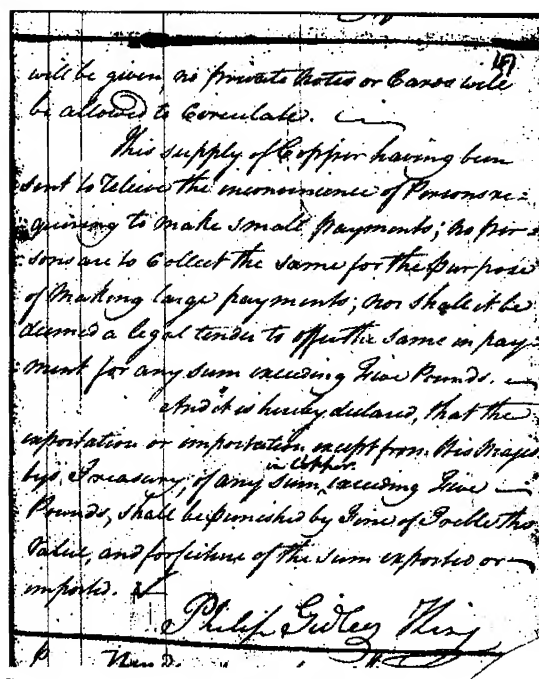 will be given, no private Notes or Cards will
be allowed to Circulate.
This supply of Copper having been
sent to relieve the inconvenience of Persons re=
=quiring to make small payments; no per=
=sons are to Collect the same for the purpose
of Making large payments; nor shall it be
deemed a legal tender to offer the same in pay=
ment for any sum exceeding Five Pounds.
And it is hereby declared, that the
exportation or importation except from His Majes
tys Treasury, of any Sum in Copper exceeding Five
Pounds, shall be punished by Fine of Treble the
Value, and forfeiture of the sum exported or
imported.
Philip Gidley King